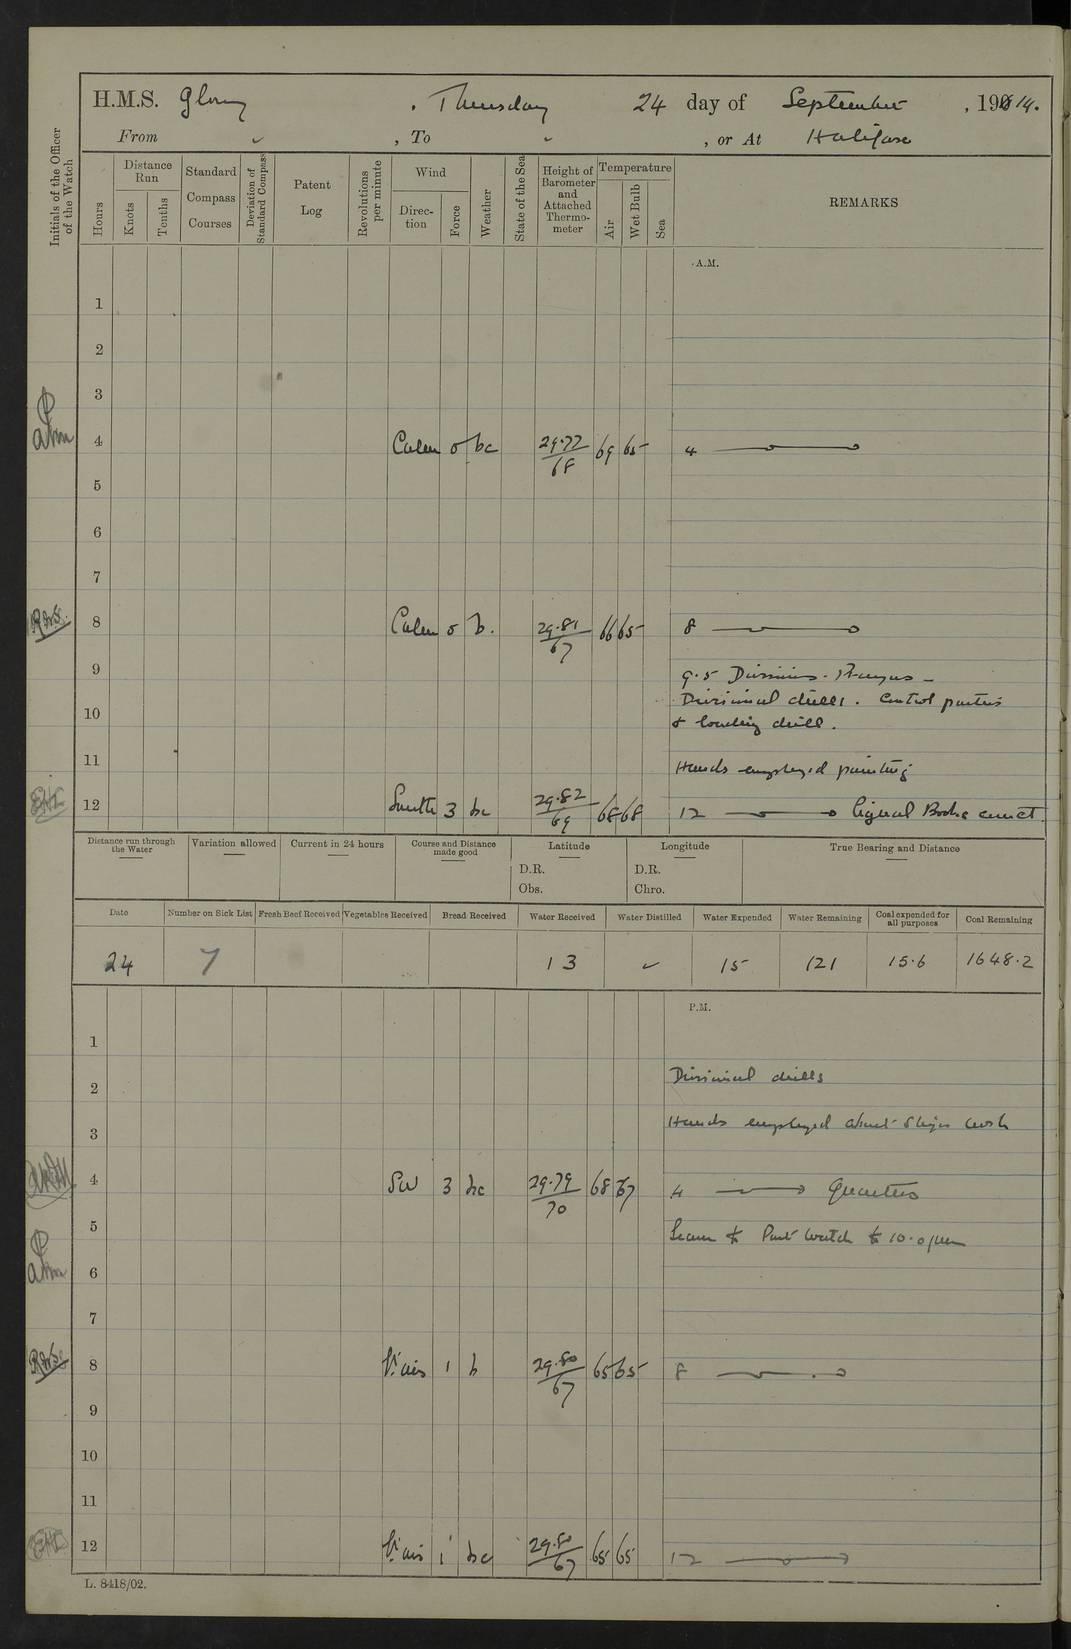 H.M.S. Glory , Thursday 24 day of September , 1914.
From , To , or At Halifax
Initials of the Officer of the Watch
Hours
Distance Run
Knots
Tenths
Standard Compass Courses
Deviation of Standard Compass
Patent Log
Revolutions per minute
Wind
Direction
Force
Weather
State of the Sea
Height of Barometer and Attached Thermometer
Temperature
Air
Wet Bulb
Sea
REMARKS
A.M.
1
2
3
4 Calm 0 bc 29.77/68 69 65 4
5
6
7
8 Calm 0 b. 29.81/67 66 65 8
9 9.5 Divisions. Prayers -
Divisional drills. Control parties
10 & loading drill.
11 Hands employed painting
12 South 3 bc 29.82/69 68 68 12 Signal Books correct.
Distance run through the Water
Variation allowed
Current in 24 hours
Course and Distance made good
Latitude
D.R.
Obs.
Longitude
D.R.
Chro.
True Bearing and Distance
Date Number on Sick List Fresh Beef Received Vegetables Received Bread Received Water Received Water Distilled Water Expended Water Remaining Coal expended for all purposes Coal Remaining
24 7 13 15 121 15.6 1648.2
P.M.
1
2 Divisional drills
3 Hands employed about Ships work
4 SW 3 bc 29.79/70 68 67 4 Quarters
5 Leave to Part Watch to 10.0 pm
6
7
8 V. airs 1 b 29.80/67 65 65 8
9
10
11
12 V. airs 1 bc 29.80/67 65 65 12
L. 8418/02.